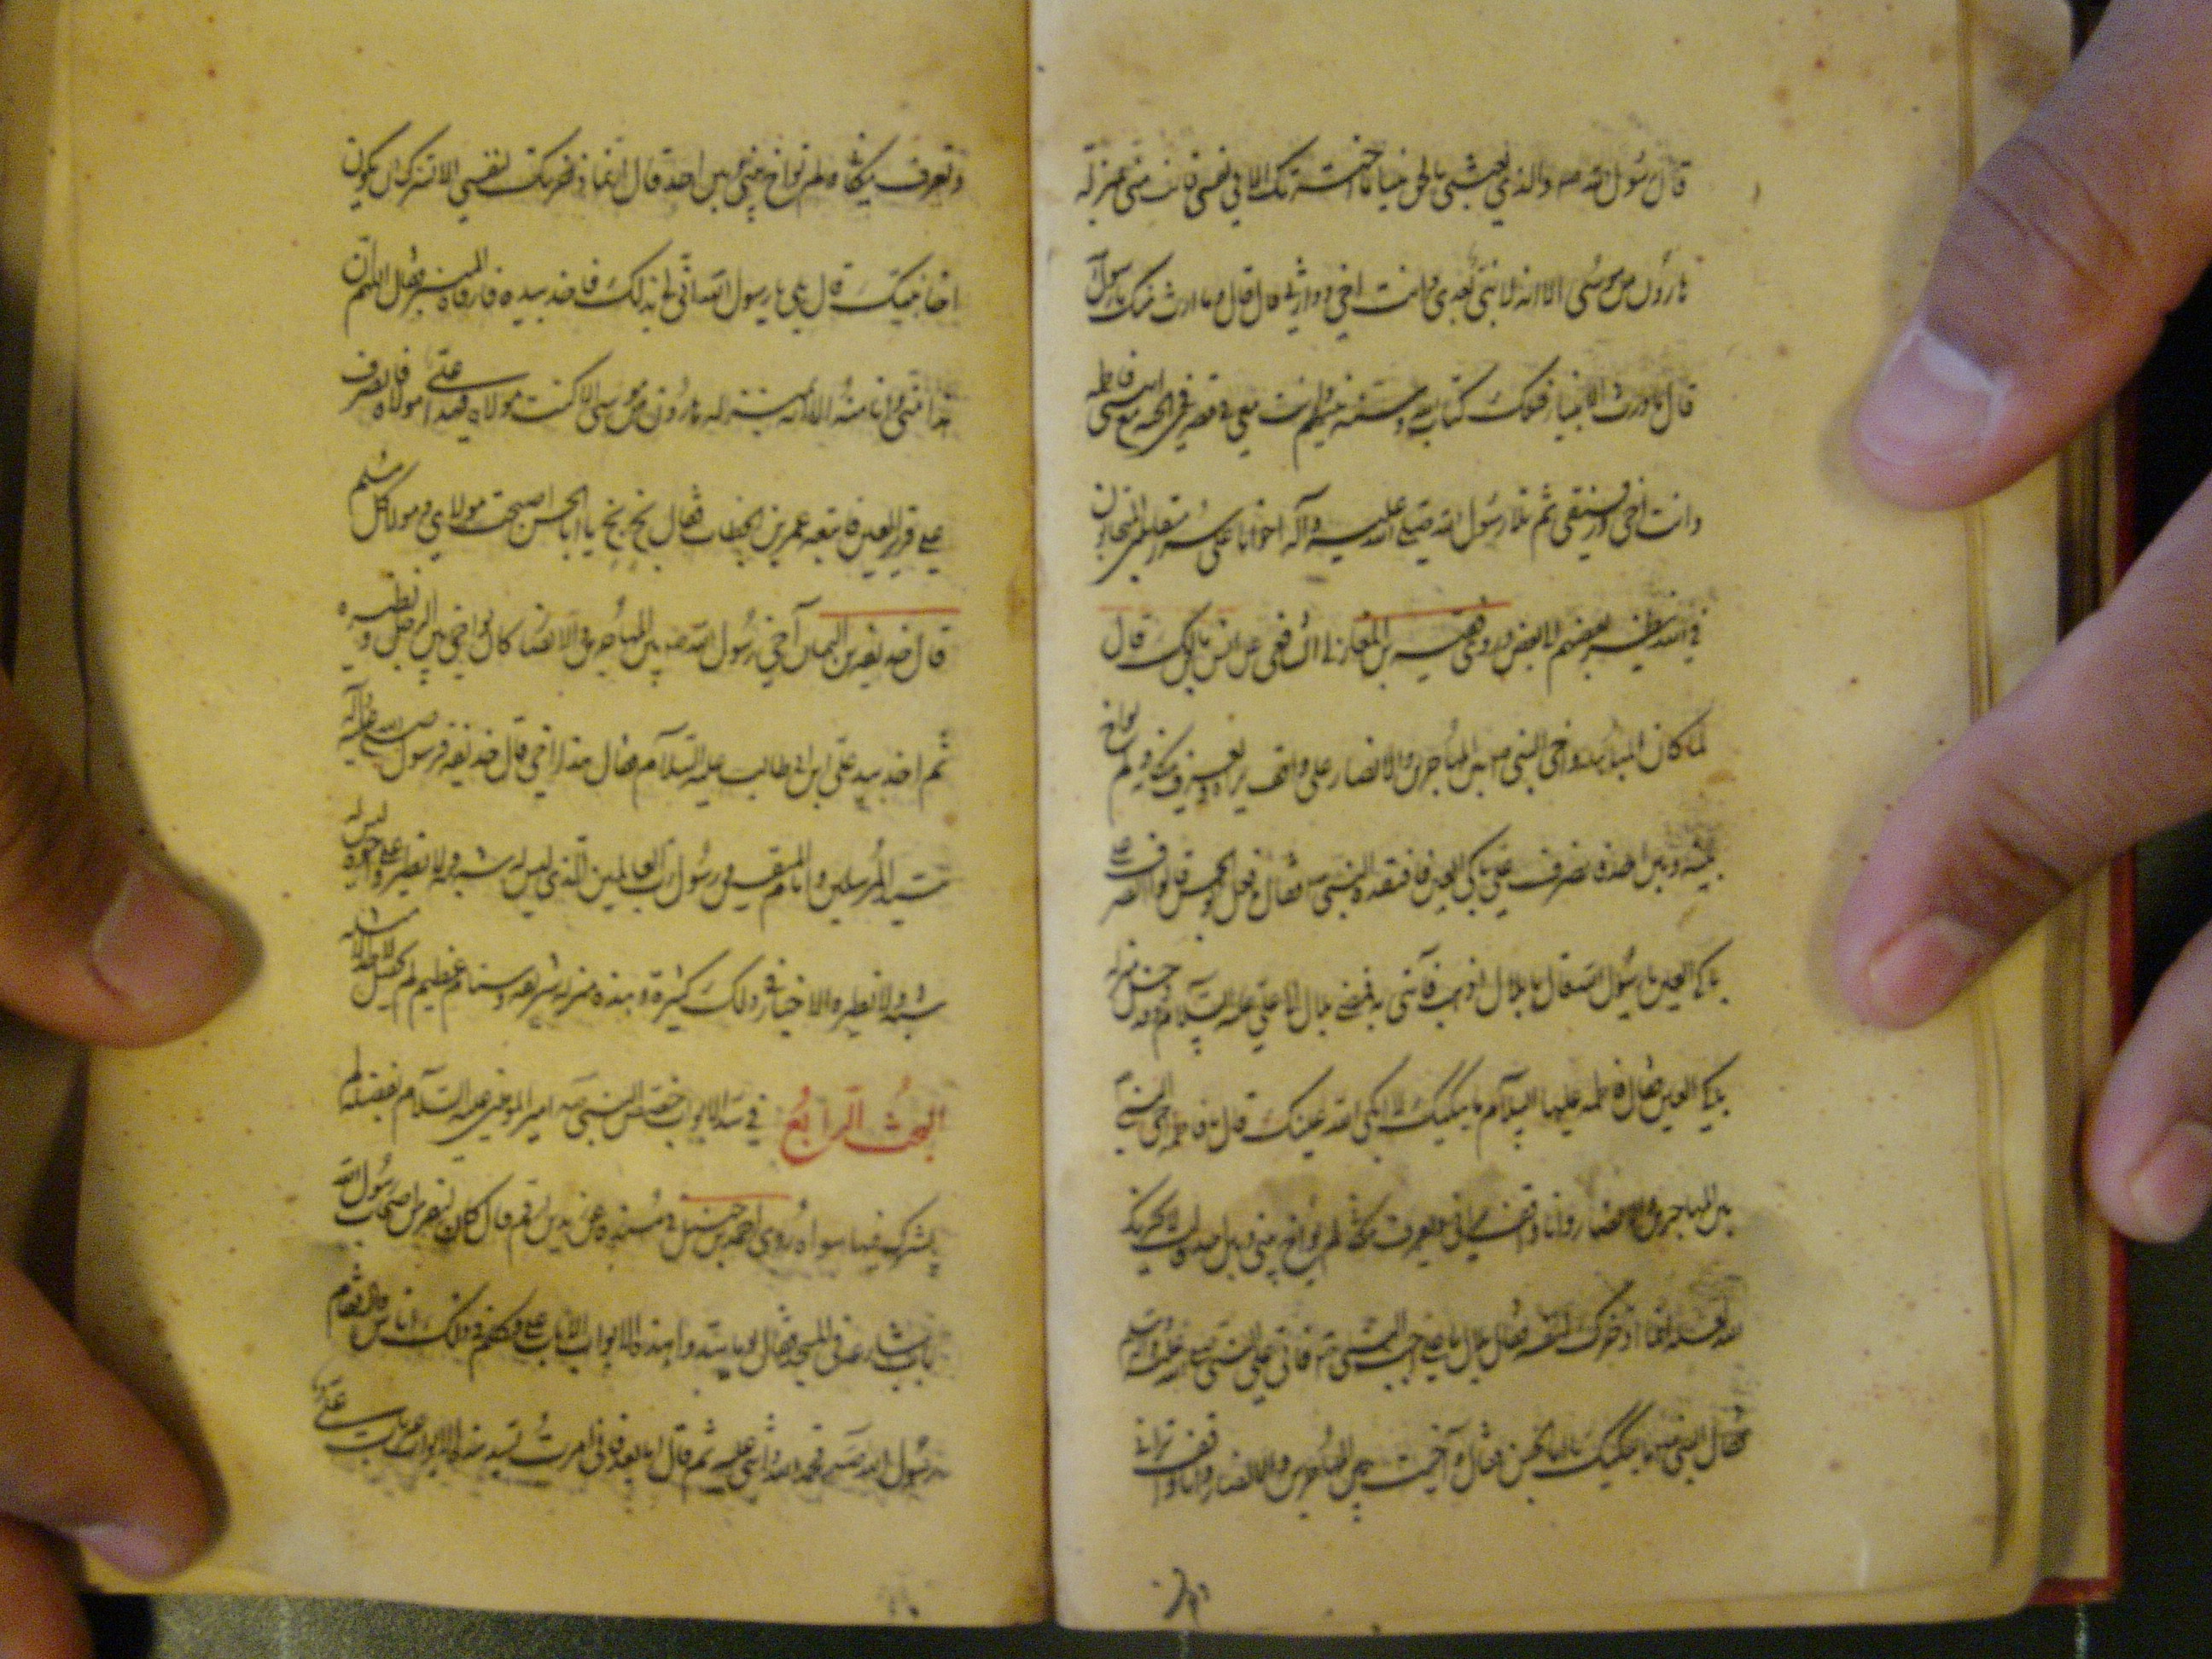 قال رسول الله ص والذي بعثني بالحق نبيا ما اخترتك الا لنفسي فانت مني بمنزلة
هارون من موسى الا انه لا نبي بعدي وانت اخي ووارثي قال قال وما ارث منك يا رسول الله
قال ما ورث الانبياء قبلك كتاب الله وسنة نبيهم وانت معي في قصري في الجنة مع ابنتي فاطمة
وانت اخي ورفيقي ثم تلا رسول الله صلى الله عليه وآله اخوانا على سرر متقابلين المتحابون
في الله ينظر بعضهم لا بعض وروى الفقيه بن المغازلي الشافعي عن انس بن مالك قال
لما كان المباهلة واخى النبي ص بين المهاجرين والانصار وعلي واقف يراه ويعرف مكانه ولم يواخ
بينه وبين احد فانصرف علي باكي العين فافتقده النبي ص فقال ما فعل ابو الحسن قالوا انصرف
باكي العين يا رسول الله قال يا بلال اذهب فأتني به فمضى بلال الى علي عليه السلام وقد دخل منزله
باكي العين فقال فاطمة عليها السلام ما يبكيك لا ابكى الله عينك قال يا فاطمة اخى النبي
بين المهاجرين والانصار وانا واقف يراني ويعرف مكاني لم يواخ بيني وبين احد قالت لا يحزنك
الله لعله انما اذخرك لنفسه فقال بلال يا علي اجب النبي ص فاتى علي النبي صلى الله عليه وآله
فقال النبي ص ما يبكيك يا ابا الحسن فقال آخيت بين المهاجرين والانصار وانا واقف تراني
وتعرف
وتعرف مكاني ولم تواخ بيني وبين احد قال انما ذخرتك لنفسي الا يسرك ان يكون
اخا نبيك قال بلى يا رسول الله انى لي بذلك فاخذ بيده فارقاه المنبر فقال اللهم ان
هذا مني وانا منه الا انه بمنزلة هارون من موسى الا من كنت مولاه فهذا علي مولاه فانصرف
علي قرير العين فاتبعه عمر بن الخطاب فقال بخ بخ يا ابا الحسن اصبحت مولاي ومولا كل مسلم
قال حذيفة بن اليمان آخى رسول الله ص بين المهاجرين والانصار كان يواخي بين الرجل ونظيره
ثم اخذ بيد علي ابن ابي طالب عليه السلام فقال هذا اخي قال حذيفة فرسول الله صلى الله عليه وآله
سيد المرسلين وامام المتقين ورسول رب العالمين الذي ليس له شبه ولا نظير وعلي اخوه ليس له
شبه ولا نظير والاخبار في ذلك كثيرة وهذه منزلة شريفة ومقام عظيم لم يحصل لاحد سواه
البحث الرابع في سد الابواب خصص النبي ص امير المؤمنين عليه السلام بفضيلة لم
يشركه فيها سواه روى احمد بن حنبل في مسنده عن زيد بن ارقم قال كان لنفر من اصحاب رسول الله
ابواب شارعة في المسجد فقال يوما سدوا هذه الابواب الا باب علي فتكلم في ذلك اناس قال فقام
رسول الله ص فحمد الله واثنى عليه ثم قال اما بعد فاني امرت بسد هذه الابواب غير باب علي